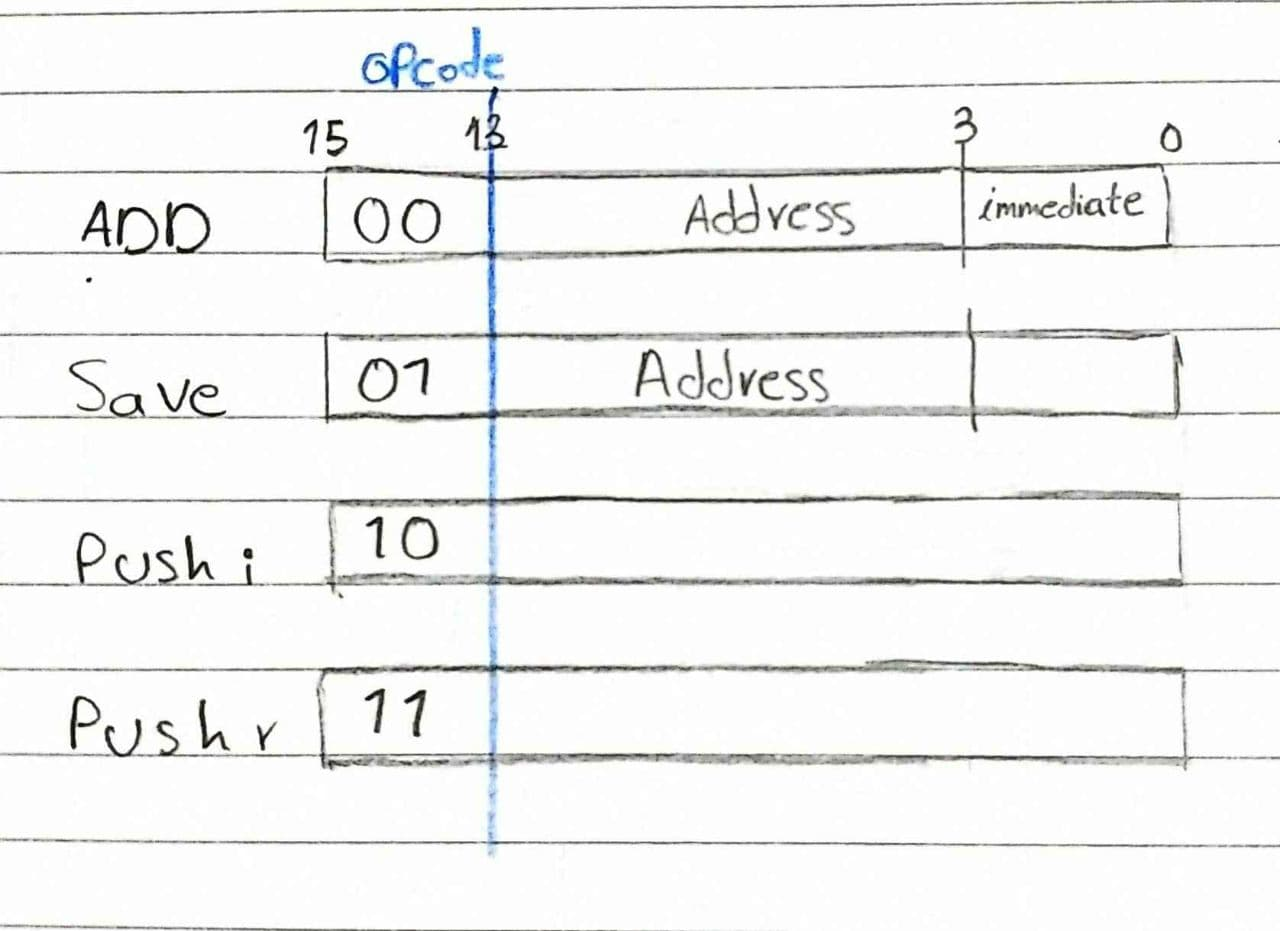 opcode
15 13 3 0
ADD 00 Address immediate
Save 01 Address
Push i 10
Push r 11